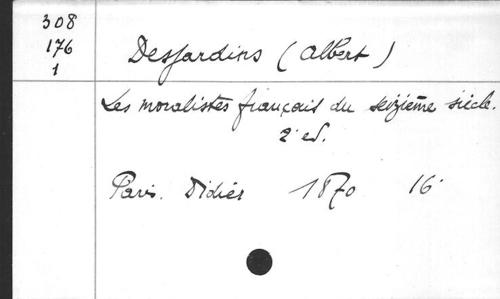 308
176
1
Desjardins (Albert)
Les moralistes français du seizième siècle.
2e ed.
Paris. Didier 1870 16°